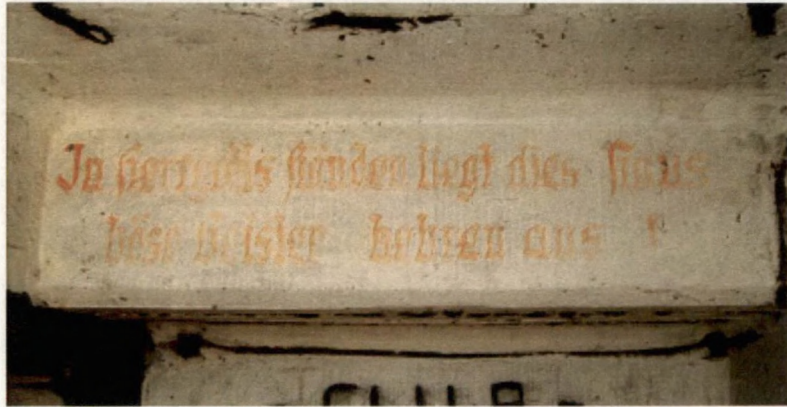 In Herrgotts Händen liegt dies Haus
böse Geister kehren aus !
CLUB